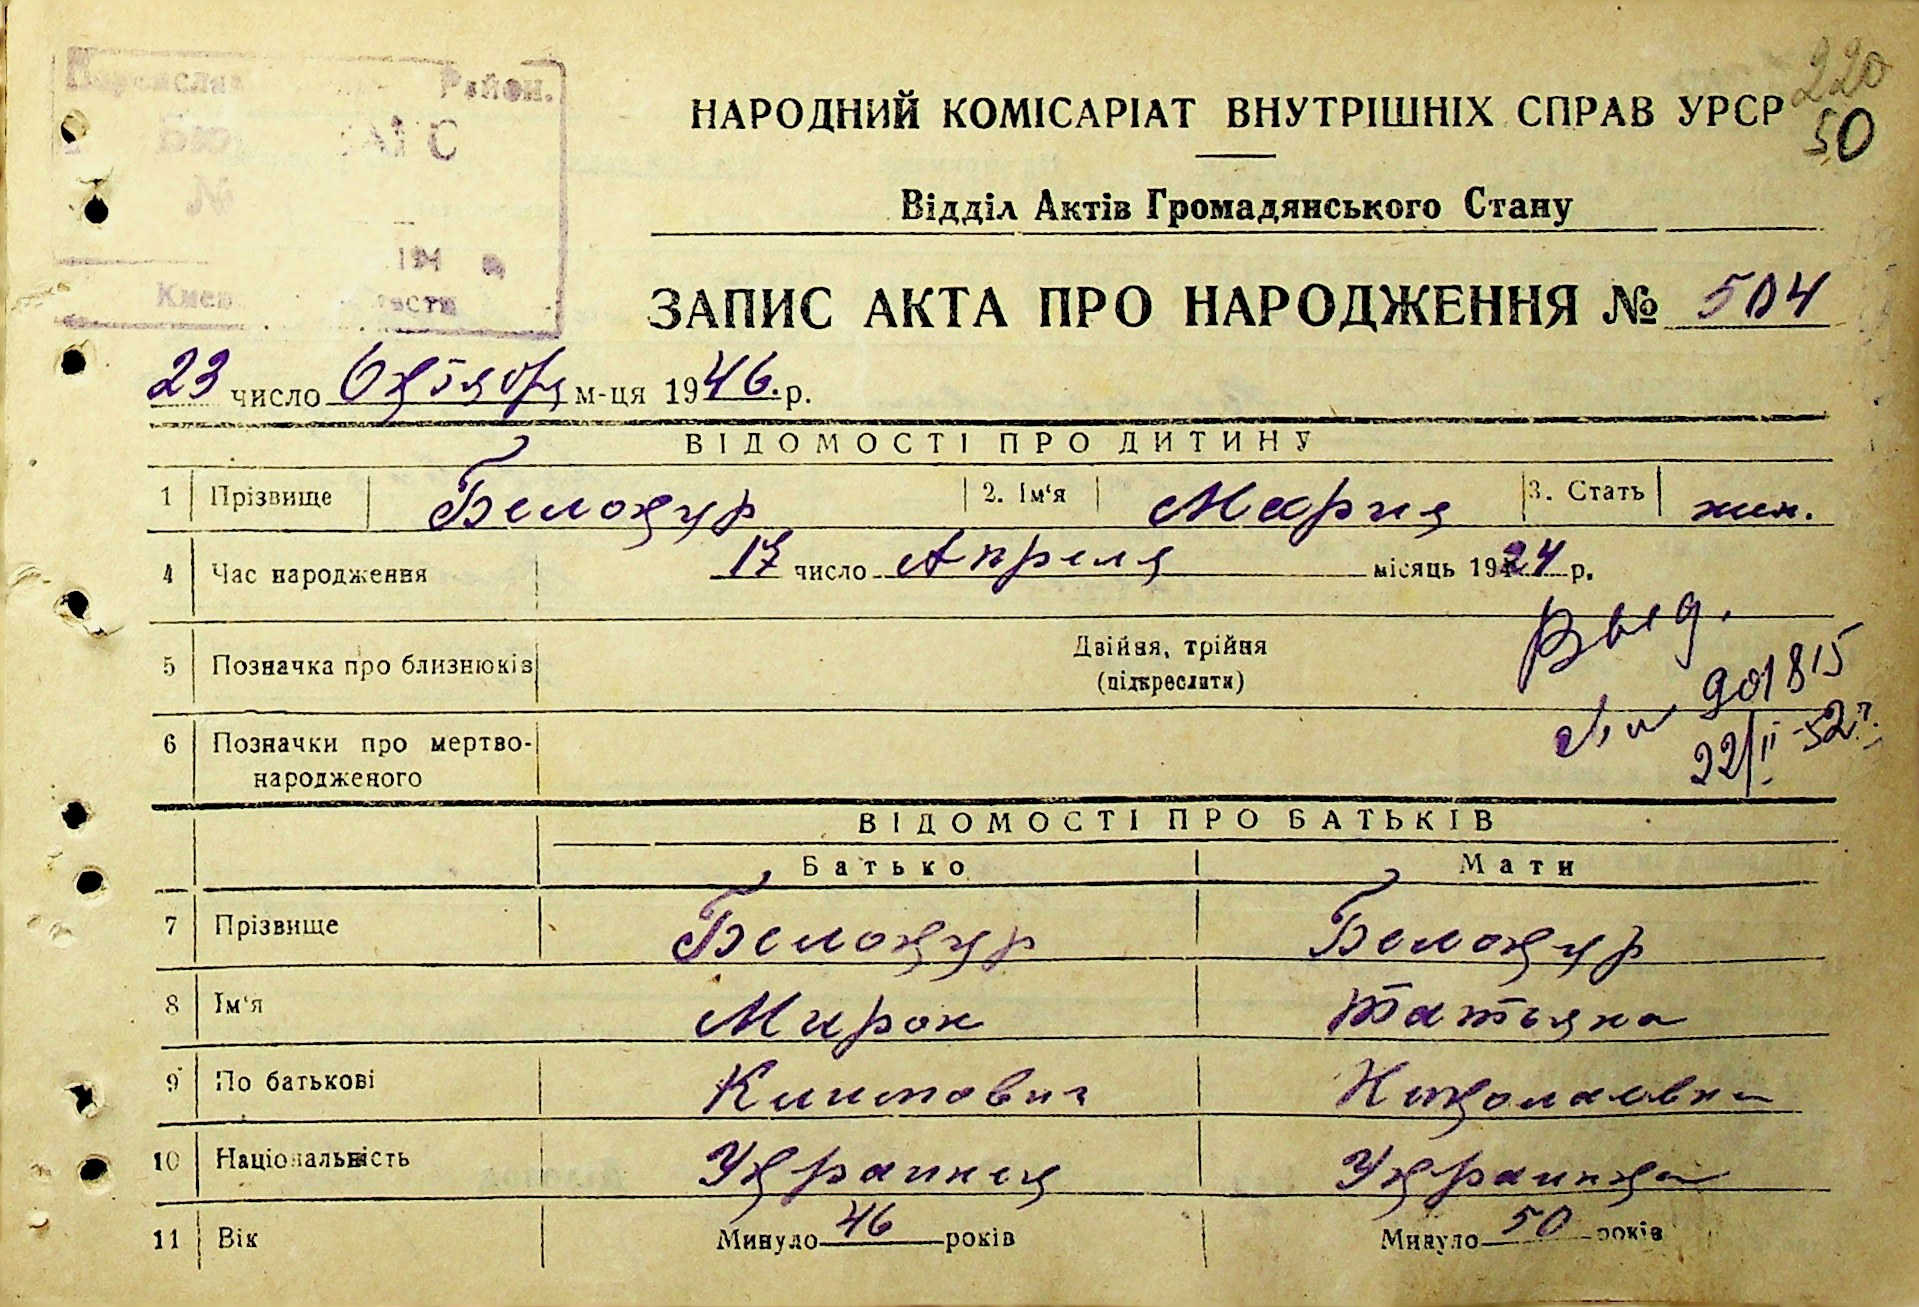 Район.
220
50
НАРОДНИЙ КОМІСАРІАТ ВНУТРІШНІХ СПРАВ УРСР
№
194
Відділ Актів Громадянського Стану
ЗАПИС АКТА ПРО НАРОДЖЕННЯ № 504
23 число Октября м-ця 1946. р.
ВІДОМОСТІ ПРО ДИТИНУ
1 Прізвище Белокур 2. Ім‘я Мария 3. Стать жен.
4 Час народження 17 число Апреля місяць 1924 р.
5 Позначка про близнюків Двійня, трійня
(підкреслити)
Выд.
901815
22/II-52г.
6 Позначки про мертво-
народженого
ВІДОМОСТІ ПРО БАТЬКІВ
Батько Мати
7 Прізвище Белокур Белокур
8 Ім‘я Мирон Татьяна
9 По батькові Климович Николаевна
10 Національність Украинец Украинка
11 Вік Минуло 46 років Минуло 50 років